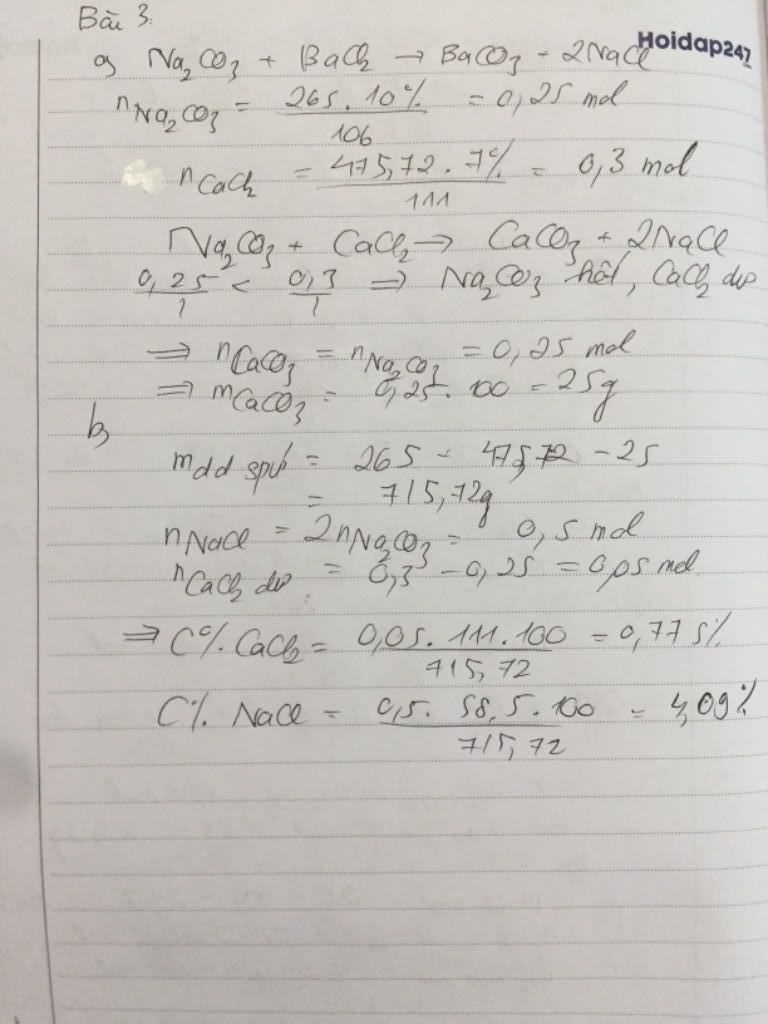 Bài 3:
Hoidap247
a, Na₂CO₃ + BaCl₂ → BaCO₃ + 2NaCl
nNa₂CO₃ = 265.10% / 106 = 0,25 mol
nCaCl₂ = 475,72.7% / 111 = 0,3 mol
Na₂CO₃ + CaCl₂ → CaCO₃ + 2NaCl
0,25/1 < 0,3/1 ⇒ Na₂CO₃ hết, CaCl₂ dư
⇒ nCaCO₃ = nNa₂CO₃ = 0,25 mol
⇒ mCaCO₃ = 0,25.100 = 25g
b,
mdd spư = 265 + 475,72 - 25
= 715,72g
nNaCl = 2nNa₂CO₃ = 0,5 mol
nCaCl₂ dư = 0,3 - 0,25 = 0,05 mol
⇒ C% CaCl₂ = 0,05.111.100 / 715,72 = 0,775%
C% NaCl = 0,5.58,5.100 / 715,72 = 4,09%